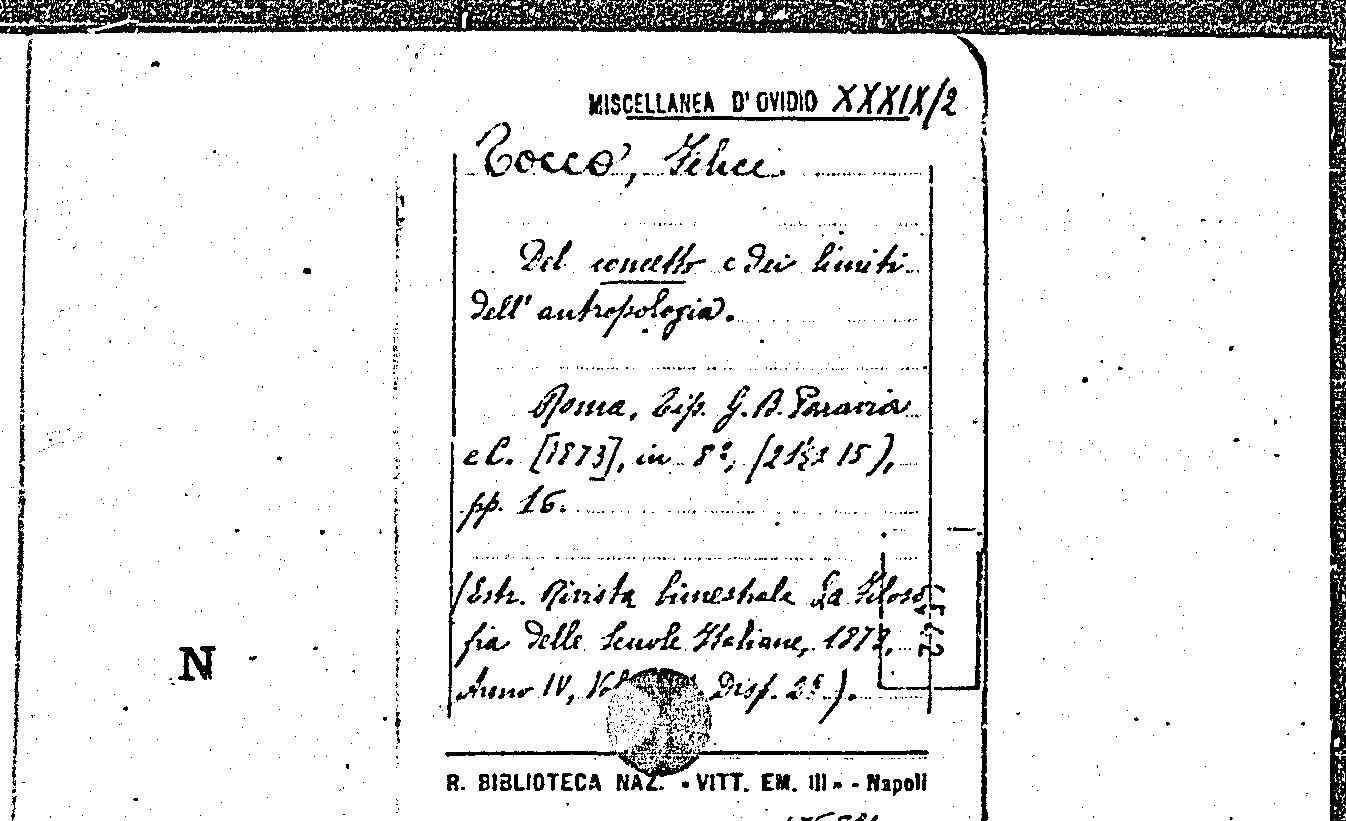 MISCELLANEA D' OVIDIO XXXIX/2
Tocco, Felice.
Del concetto e dei limiti
dell' antropologia.
Roma, Tip. G. B. Paravia
e C. [1873], in 8º,
pp. 16.
(Estr. Rivista bimestrale La Filoso
fia delle Scuole Italiane, 1873,
Anno IV, Disp. 2ª).
N
R. BIBLIOTECA NAZ. « VITT. EM. III » - Napoli